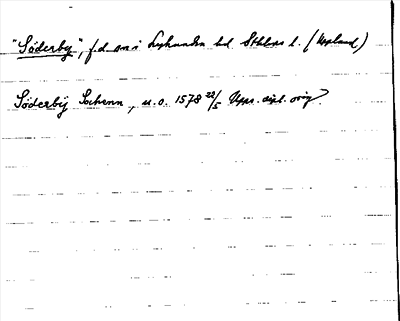 "Söderby", f.d. sn i Lyhundra hd Sthlms l. (Uppland)
Söderbÿ Sochenn, u.o. 1578 22/5 Upps. dipl. orig.